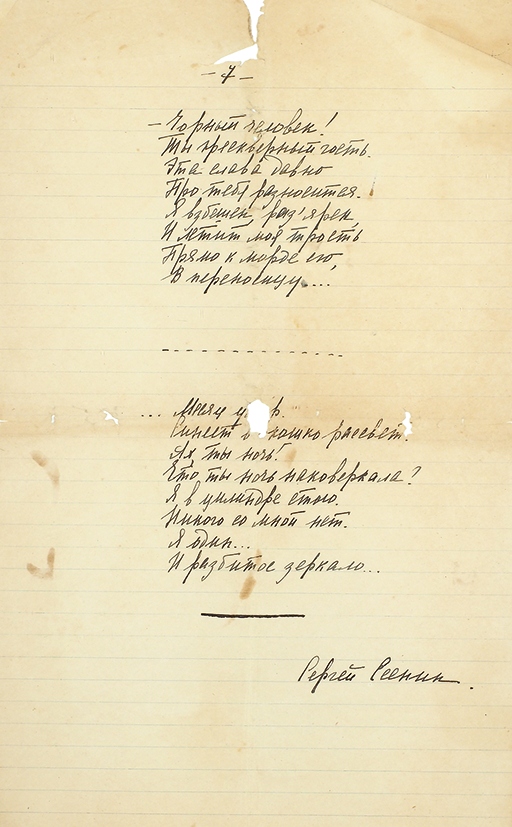 – 7 –
– Чорный человек!
Ты прескверный гость.
Эта слава давно
Про тебя разносится.
Я взбешен, раз'ярен,
И летит моя трость
Прямо к морде его,
В переносицу....
... Месяц у р.
Синеет в кошко рассвет.
Ах, ты ночь!
Что ты ночь наковеркала?
Я в цилиндре стою.
Никого со мной нет.
Я один...
И разбитое зеркало...
Сергей Есенин.